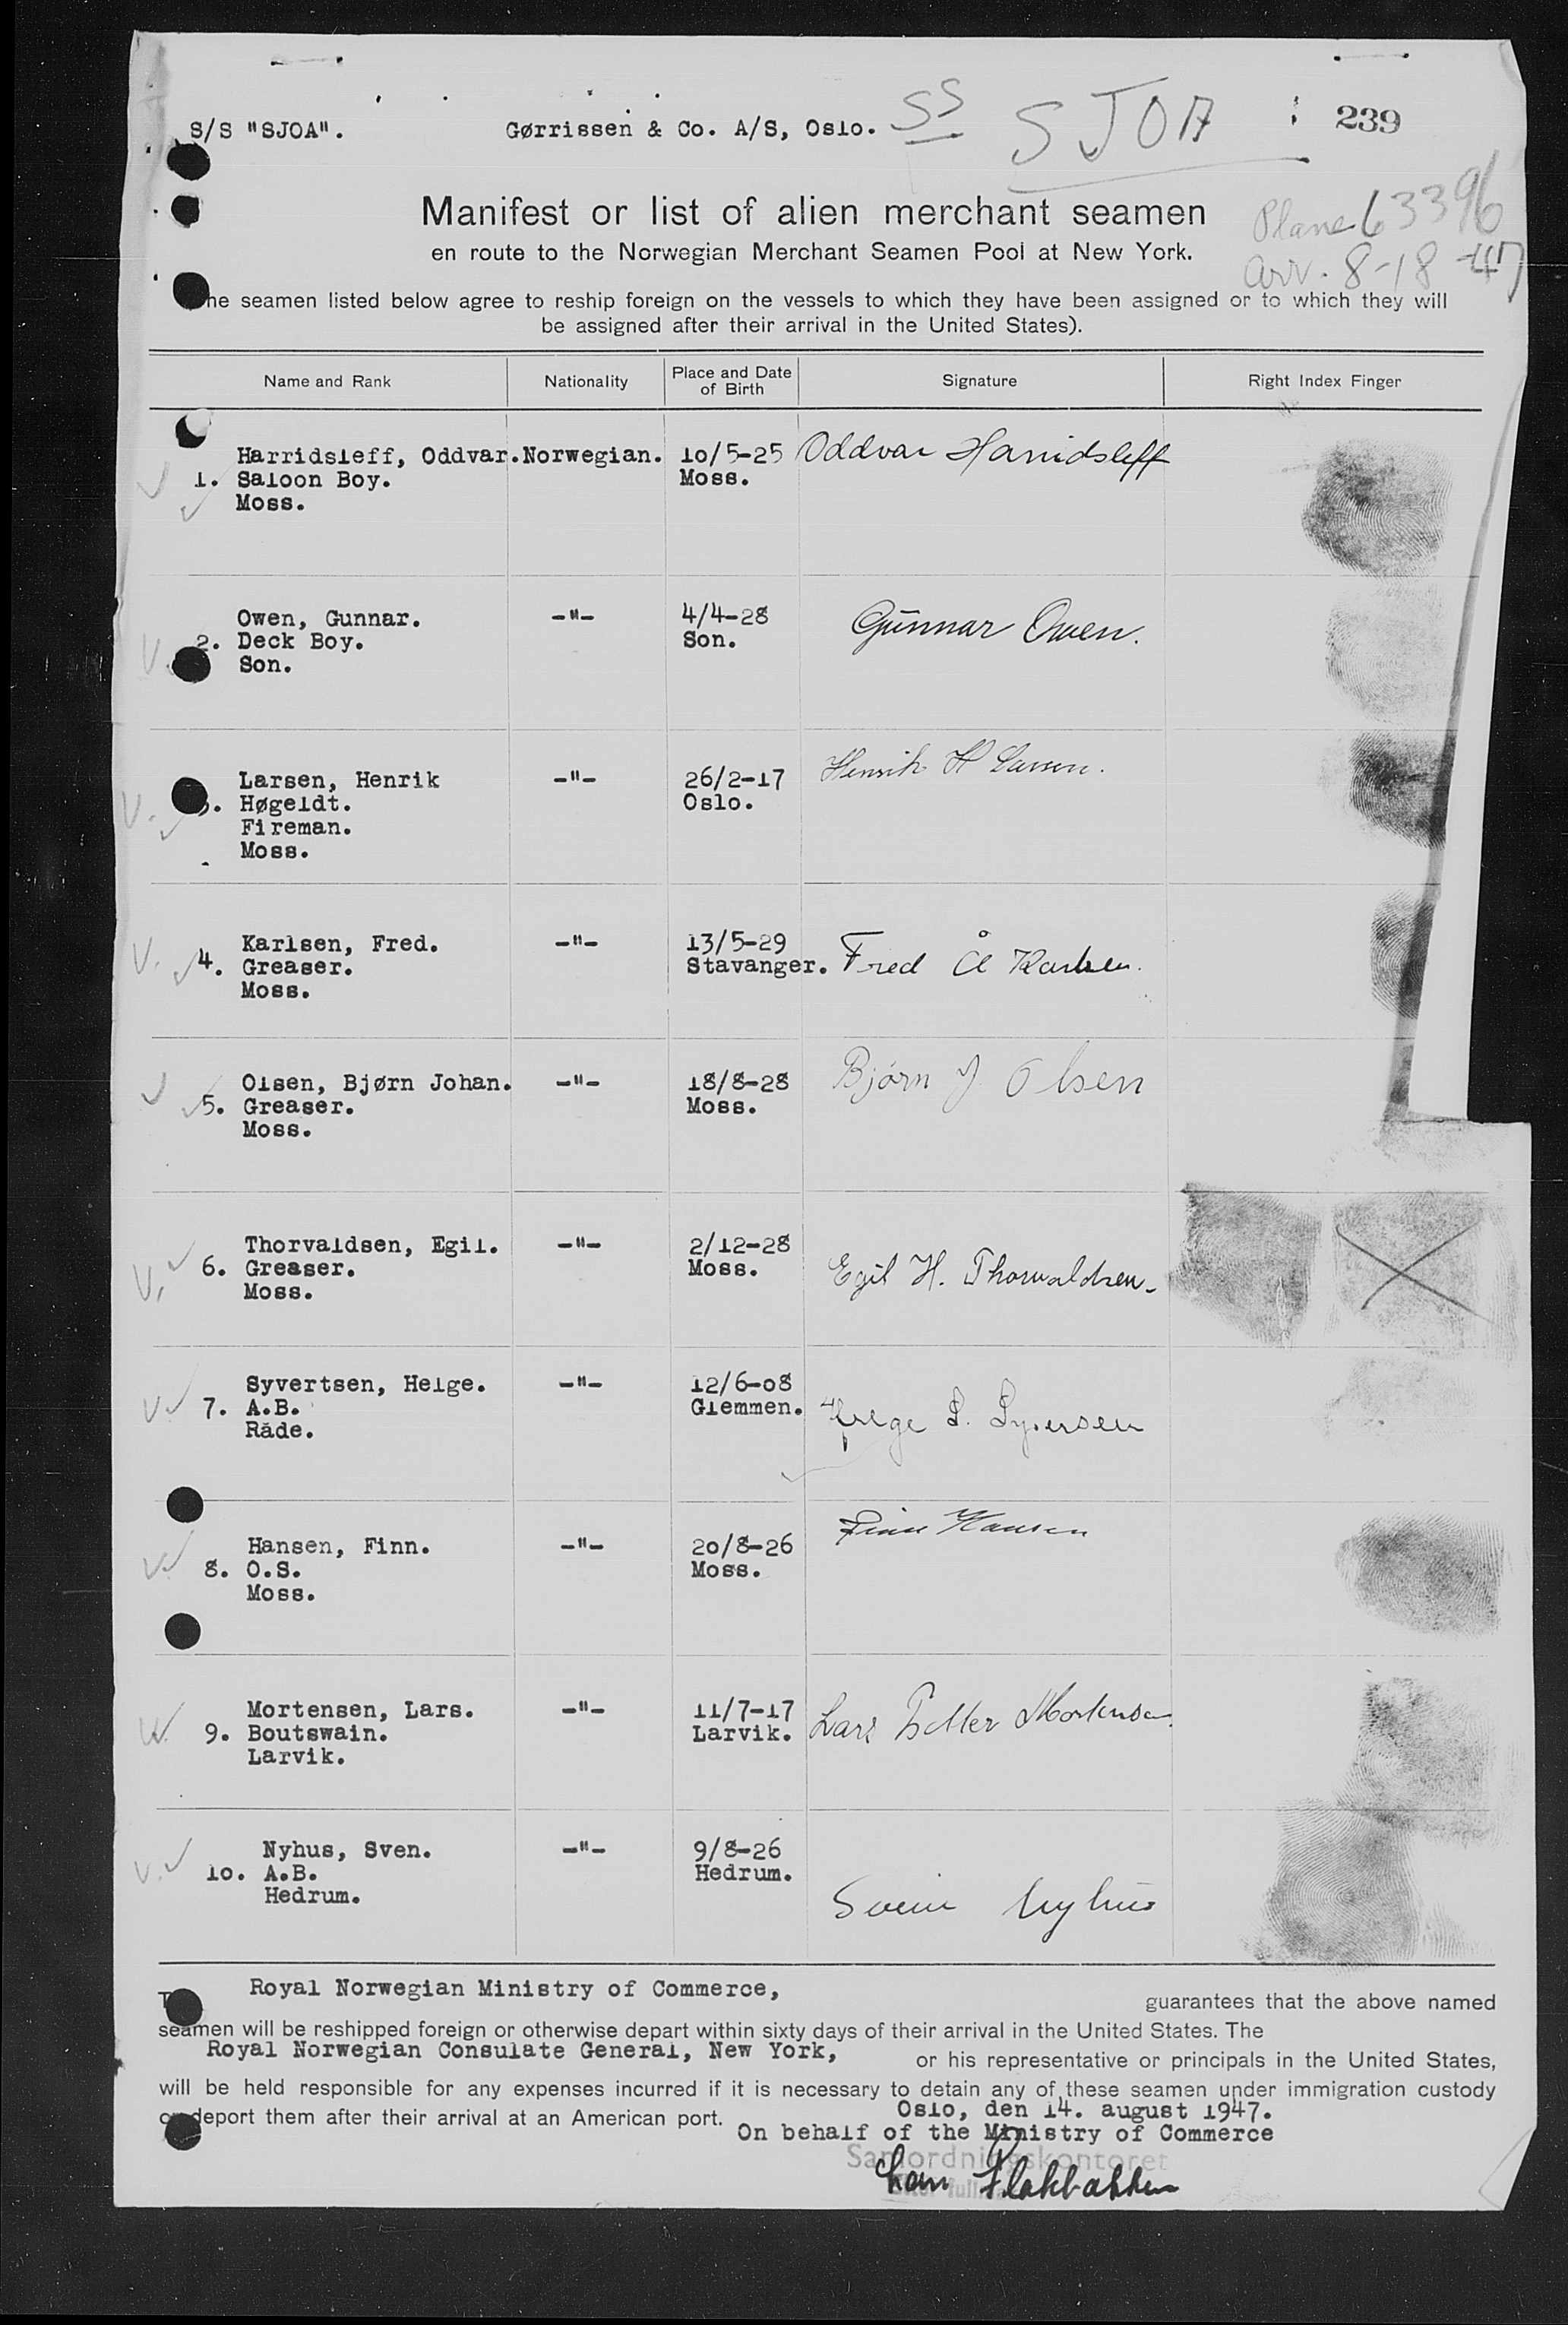 S/S "SJOA". Gørrissen & Co. A/S, Oslo. SS SJOA 239
Manifest or list of alien merchant seamen
Plane 63396
en route to the Norwegian Merchant Seamen Pool at New York.
arr. 8-18-47
he seamen listed below agree to reship foreign on the vessels to which they have been assigned or to which they will
be assigned after their arrival in the United States).
Name and Rank Nationality Place and Date of Birth Signature Right Index Finger
Harridsleff, Oddvar. Norwegian. 10/5-25 Oddvar Harridsleff
1. Saloon Boy. Moss.
Moss.
Owen, Gunnar. -"- 4/4-28 Gunnar Owen.
2. Deck Boy. Son.
Son.
Larsen, Henrik -"- 26/2-17 Henrik H Larsen.
3. Høgeldt. Oslo.
Fireman.
Moss.
Karlsen, Fred. -"- 13/5-29 Fred Å Karlsen.
4. Greaser. Stavanger.
Moss.
Olsen, Bjørn Johan. -"- 18/8-28 Bjørn J Olsen
5. Greaser. Moss.
Moss.
Thorvaldsen, Egil. -"- 2/12-28 Egil H. Thorvaldsen.
6. Greaser. Moss.
Moss.
Syvertsen, Helge. -"- 12/6-08 Helge S. Syversen
7. A.B. Glemmen.
Råde.
Hansen, Finn. -"- 20/8-26 Finn Hansen
8. O.S. Moss.
Moss.
Mortensen, Lars. -"- 11/7-17 Lars Petter Mortensen.
9. Boutswain. Larvik.
Larvik.
Nyhus, Sven. -"- 9/8-26 Svein Nyhus
10. A.B. Hedrum.
Hedrum.
Royal Norwegian Ministry of Commerce, guarantees that the above named
seamen will be reshipped foreign or otherwise depart within sixty days of their arrival in the United States. The
Royal Norwegian Consulate General, New York, or his representative or principals in the United States,
will be held responsible for any expenses incurred if it is necessary to detain any of these seamen under immigration custody
or deport them after their arrival at an American port. Oslo, den 14. august 1947.
On behalf of the Ministry of Commerce
Samordningskontoret